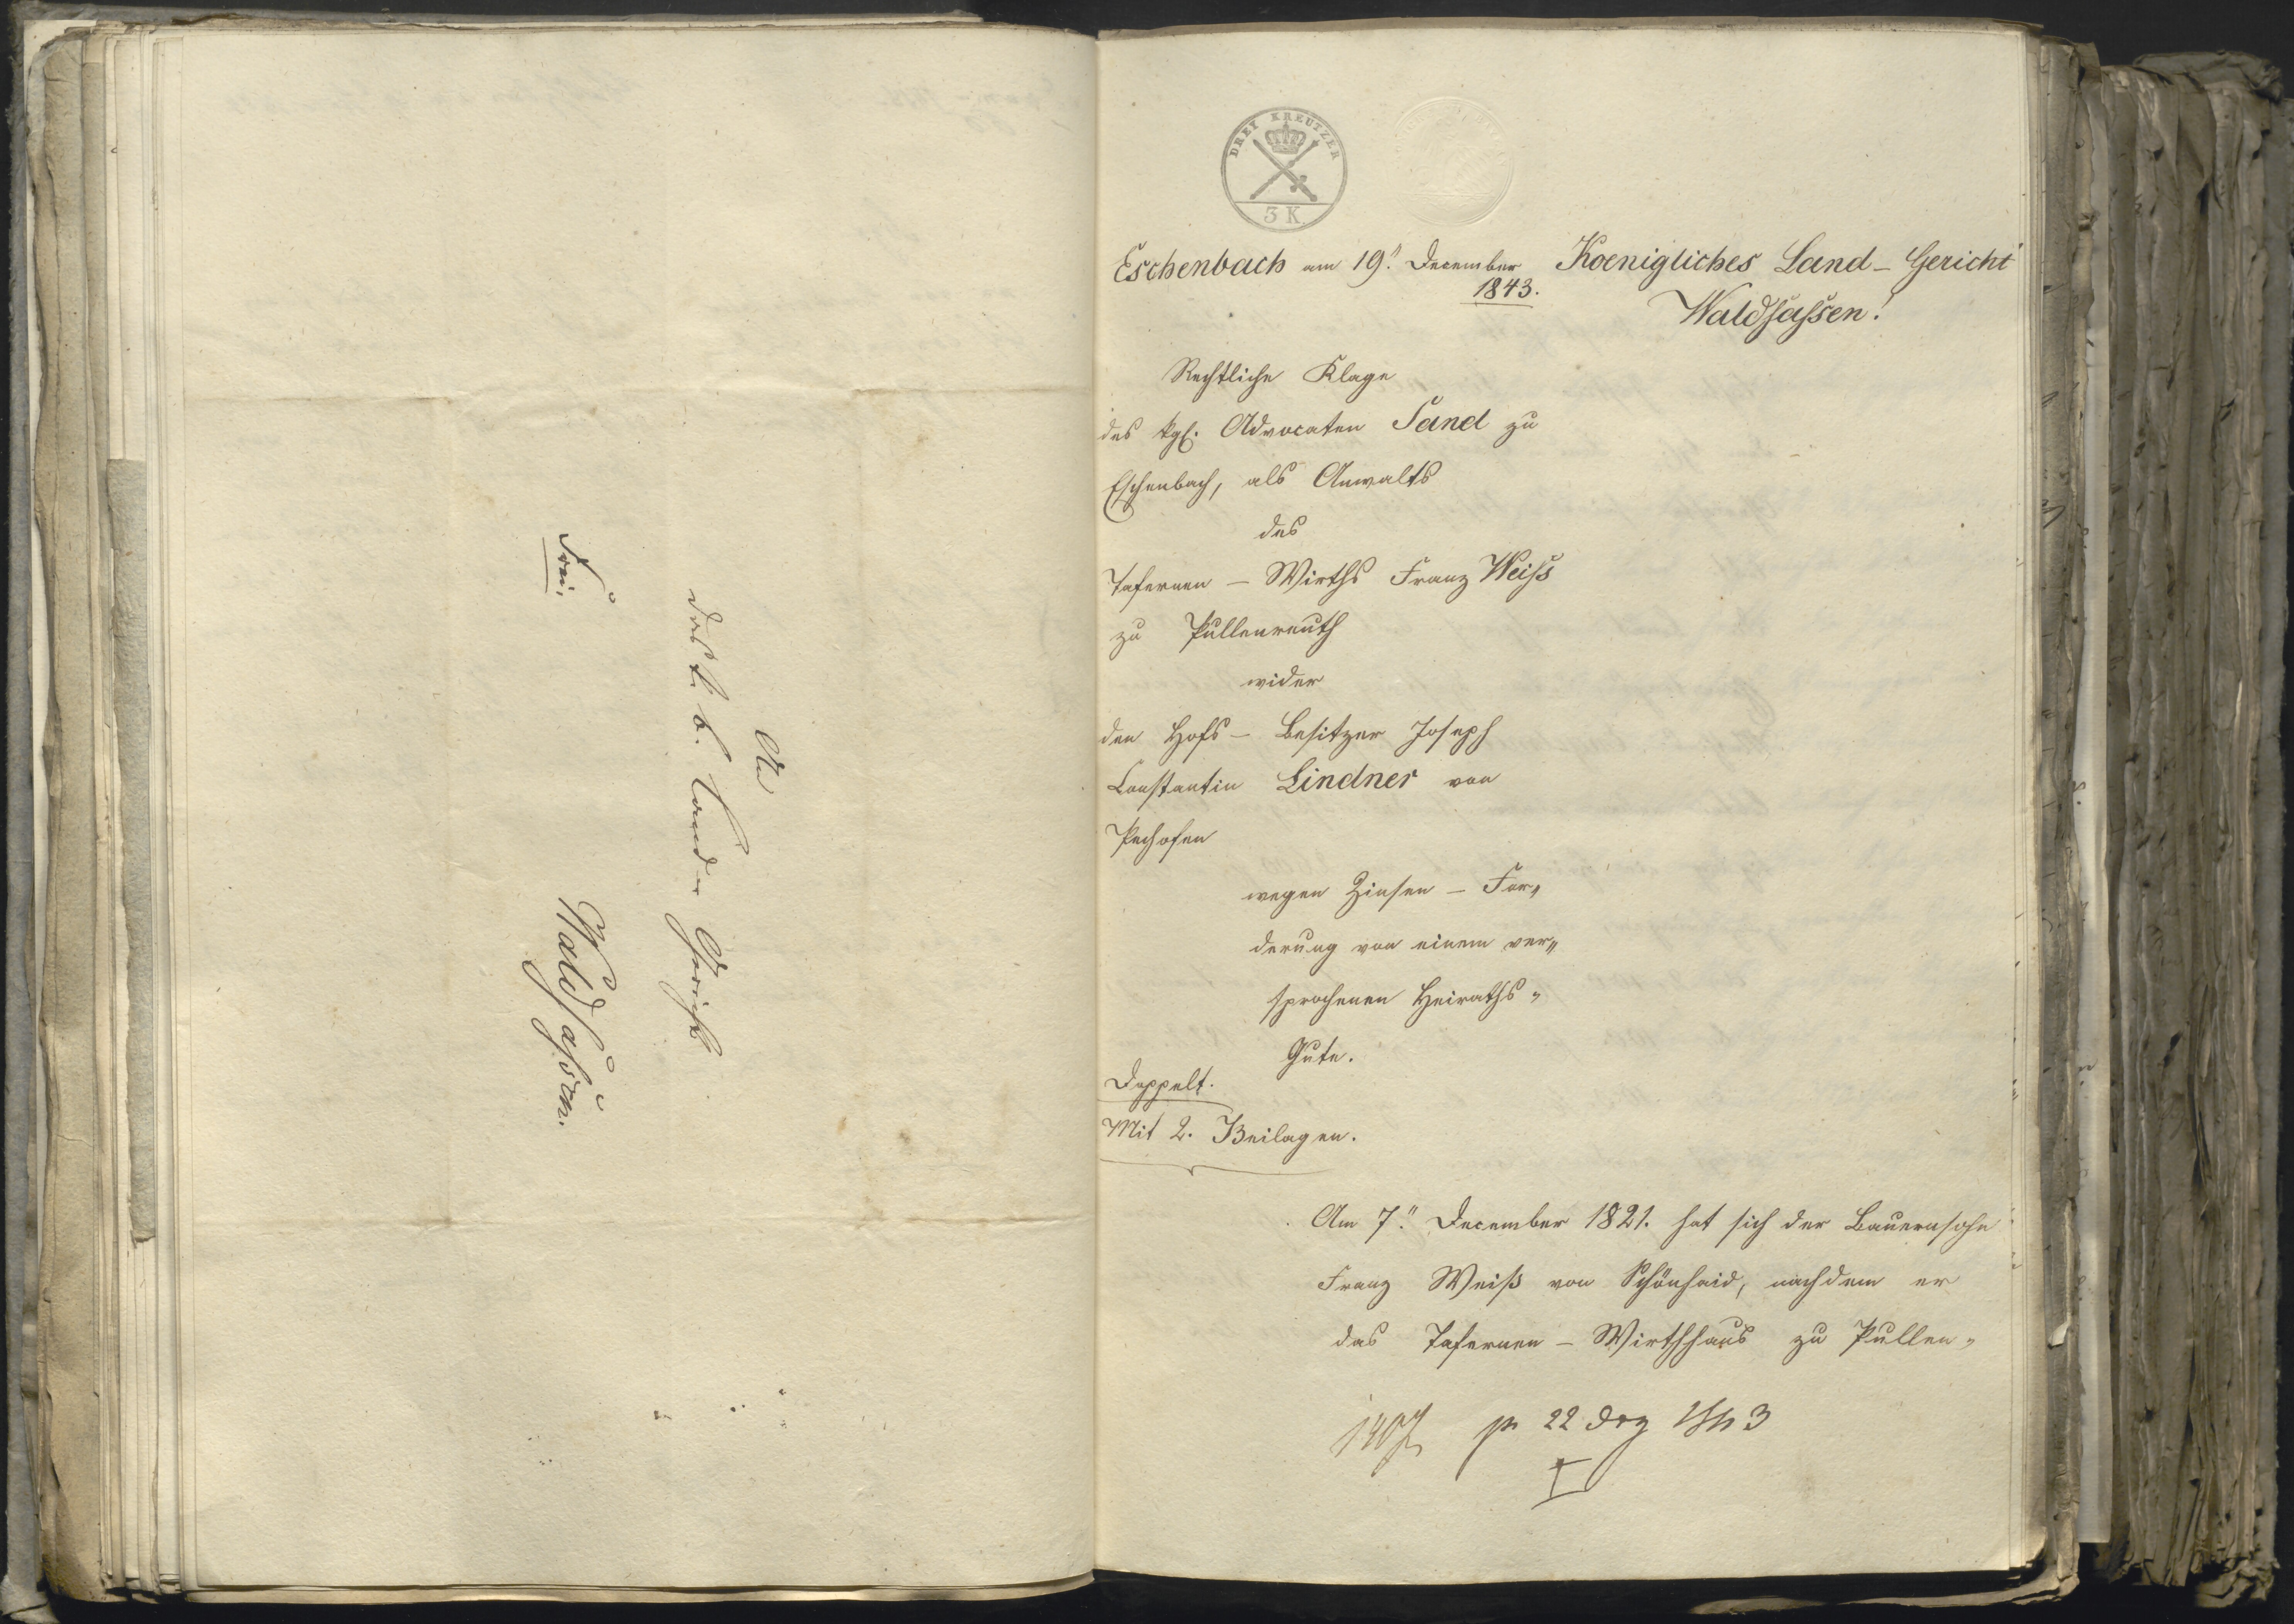 An
das k. b. Land- Gericht
Waldsaßen.
Frei.
DREY KREUTZER
3 K
Eschenbach am 19." December
1843.
Koenigliches Land- Gericht
Waldsaßen!
Rechtliche Klage
des kgl. Advocaten Sand zu
Eschenbach, als Anwalts
des
Tafernen - Wirths Franz Weiß
zu Pullenreuth
wider
den Hofs- Besitzer Joseph
Constantin Lindner von
Pechofen
wegen Zinsen - For„
derung von einem ver„
sprochenen Heiraths„
Gute.
Doppelt.
Mit 2. Beilagen.
Am 7." December 1821. hat sich der Bauernsohn
Franz Weiß von Schönhaid, nachdem er
das Tafernen - Wirthhaus zu Pullen„
1407 pr 22 Dez 1843
I